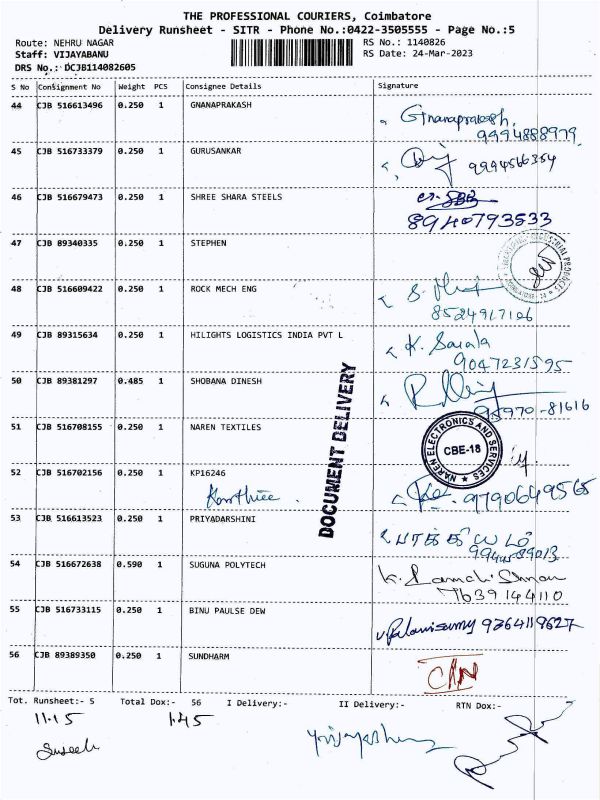 THE PROFESSIONAL COURIERS, Coimbatore
Delivery Runsheet - SITR - Phone No.:0422-3505555 - Page No.:5
Route: NEHRU NAGAR
Staff: VIJAYABANU
DRS No.: DCJB114082605
RS No.: 1140826
RS Date: 24-Mar-2023
S No Consignment No Weight PCS Consignee Details Signature
44 CJB 516613496 0.250 1 GNANAPRAKASH Gnanaprakash,
9994888979
45 CJB 516733379 0.250 1 GURUSANKAR 9994566354
46 CJB 516679473 0.250 1 SHREE SHARA STEELS
8940793533
47 CJB 89340335 0.250 1 STEPHEN
48 CJB 516609422 0.250 1 ROCK MECH ENG
8524917106
49 CJB 89315634 0.250 1 HILIGHTS LOGISTICS INDIA PVT L K. Sarala
9047231595
50 CJB 89381297 0.485 1 SHOBANA DINESH
95970-81616
DOCUMENT DELIVERY
51 CJB 516708155 0.250 1 NAREN TEXTILES
NAREN ELECTRONICS AND SERVICES
CBE-18
52 CJB 516702156 0.250 1 KP16246
9790649565
53 CJB 516613523 0.250 1 PRIYADARSHINI பாக்கியம்
9944589013
54 CJB 516672638 0.590 1 SUGUNA POLYTECH
7639144110
55 CJB 516733115 0.250 1 BINU PAULSE DEW Palanisamy 9364119627
56 CJB 89389350 0.250 1 SUNDHARM
Tot. Runsheet:- 5 Total Dox:- 56 I Delivery:- II Delivery:- RTN Dox:-
11.15 1.45